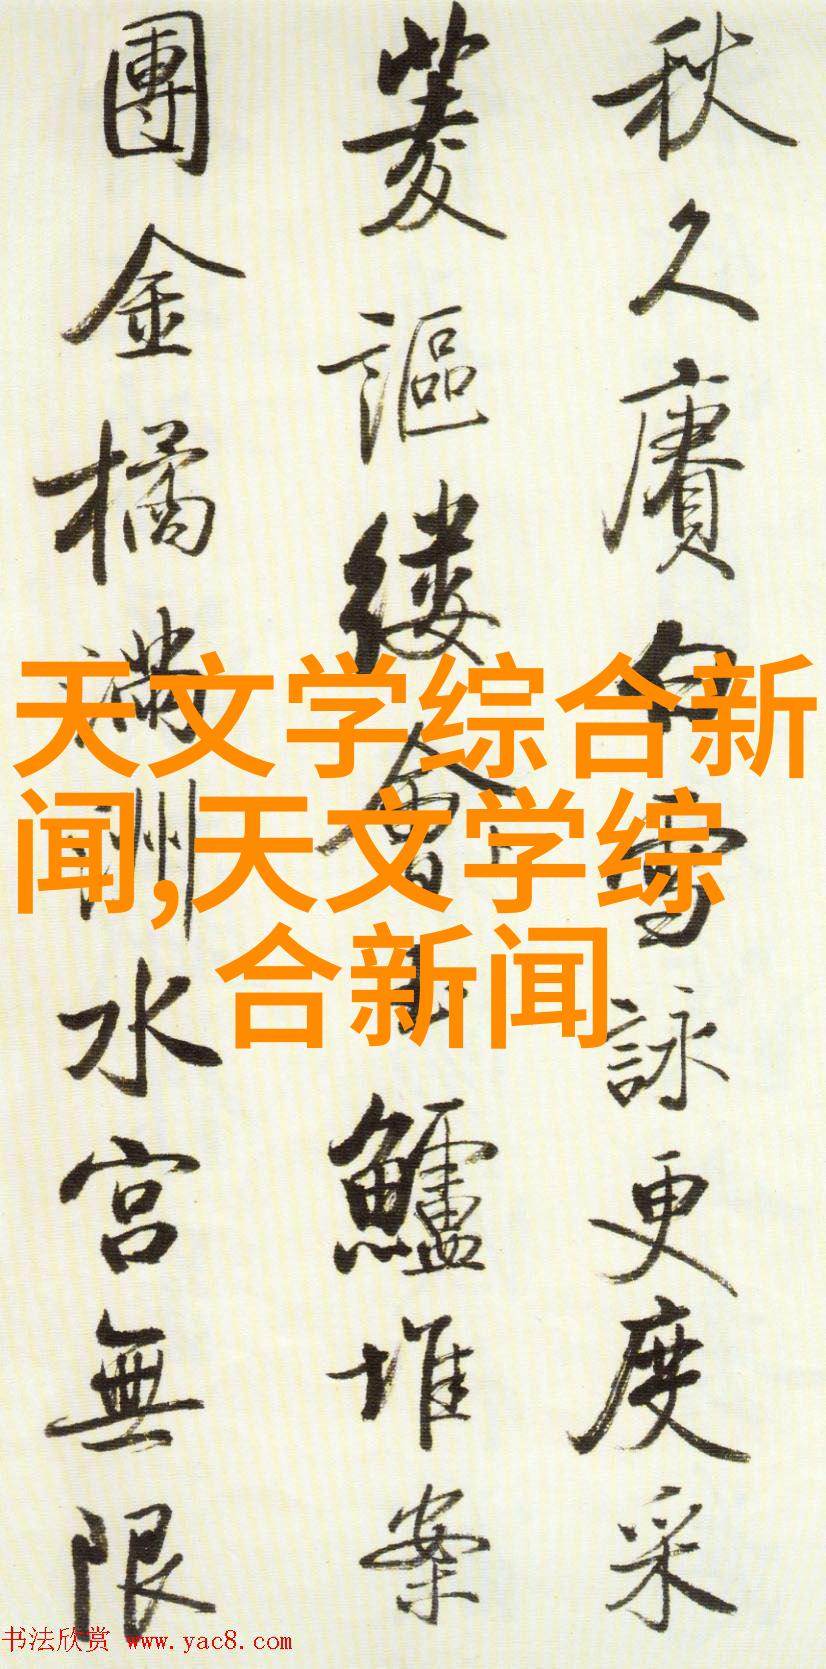 秋久賡白雪詠更度采
菱謳縷會玉鱸堆案
團金橘滿洲水宮無限
天文学综合新
闻,天文学综
合新闻
书法欣赏 www.yac8.com